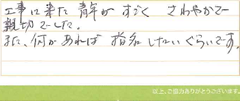 工事に来た青年がすごくさわやかで
親切でした。
また、何かあれば指名したいぐらいです。
以上、ご協力ありがとうございます。